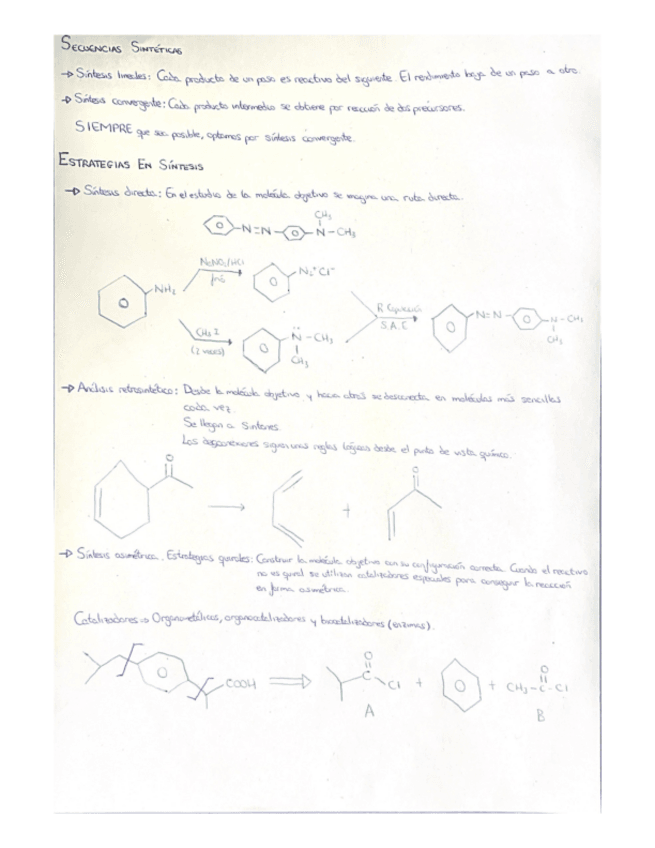 SECUENCIAS SINTÉTICAS
→ Síntesis lineales: Cada producto de un paso es reactivo del siguiente. El rendimiento baja de un paso a otro.
→ Síntesis convergente: Cada producto intermedio se obtiene por reacción de dos precursores.
SIEMPRE que sea posible, optamos por síntesis convergente.
ESTRATEGIAS EN SÍNTESIS
→ Síntesis directa: En el estudio de la molécula objetivo se imagina una ruta directa.
CH3
N=N
N-CH3
NaNO2/HCl
frío
NH2
N2+Cl-
CH3 I
(2 veces)
N-CH3
CH3
R. Copulación
S.A.E
N=N
N-CH3
CH3
→ Análisis retrosintético: Desde la molécula objetivo y hacia atrás se desconecta en moléculas más sencillas
cada vez.
Se llegan a Sintones.
Las desconexiones siguen unas reglas lógicas desde el punto de vista químico.
O
→
+
O
→ Síntesis asimétrica. Estrategias quirales: Construir la molécula objetivo con su configuración correcta. Cuando el reactivo
no es quiral se utilizan catalizadores especiales para conseguir la reacción
en forma asimétrica.
Catalizadores ⇒ Organometálicos, organocatalizadores y biocatalizadores (enzimas).
COOH
⇒
O
C
Cl
+
+
O
CH3-C-Cl
A
B